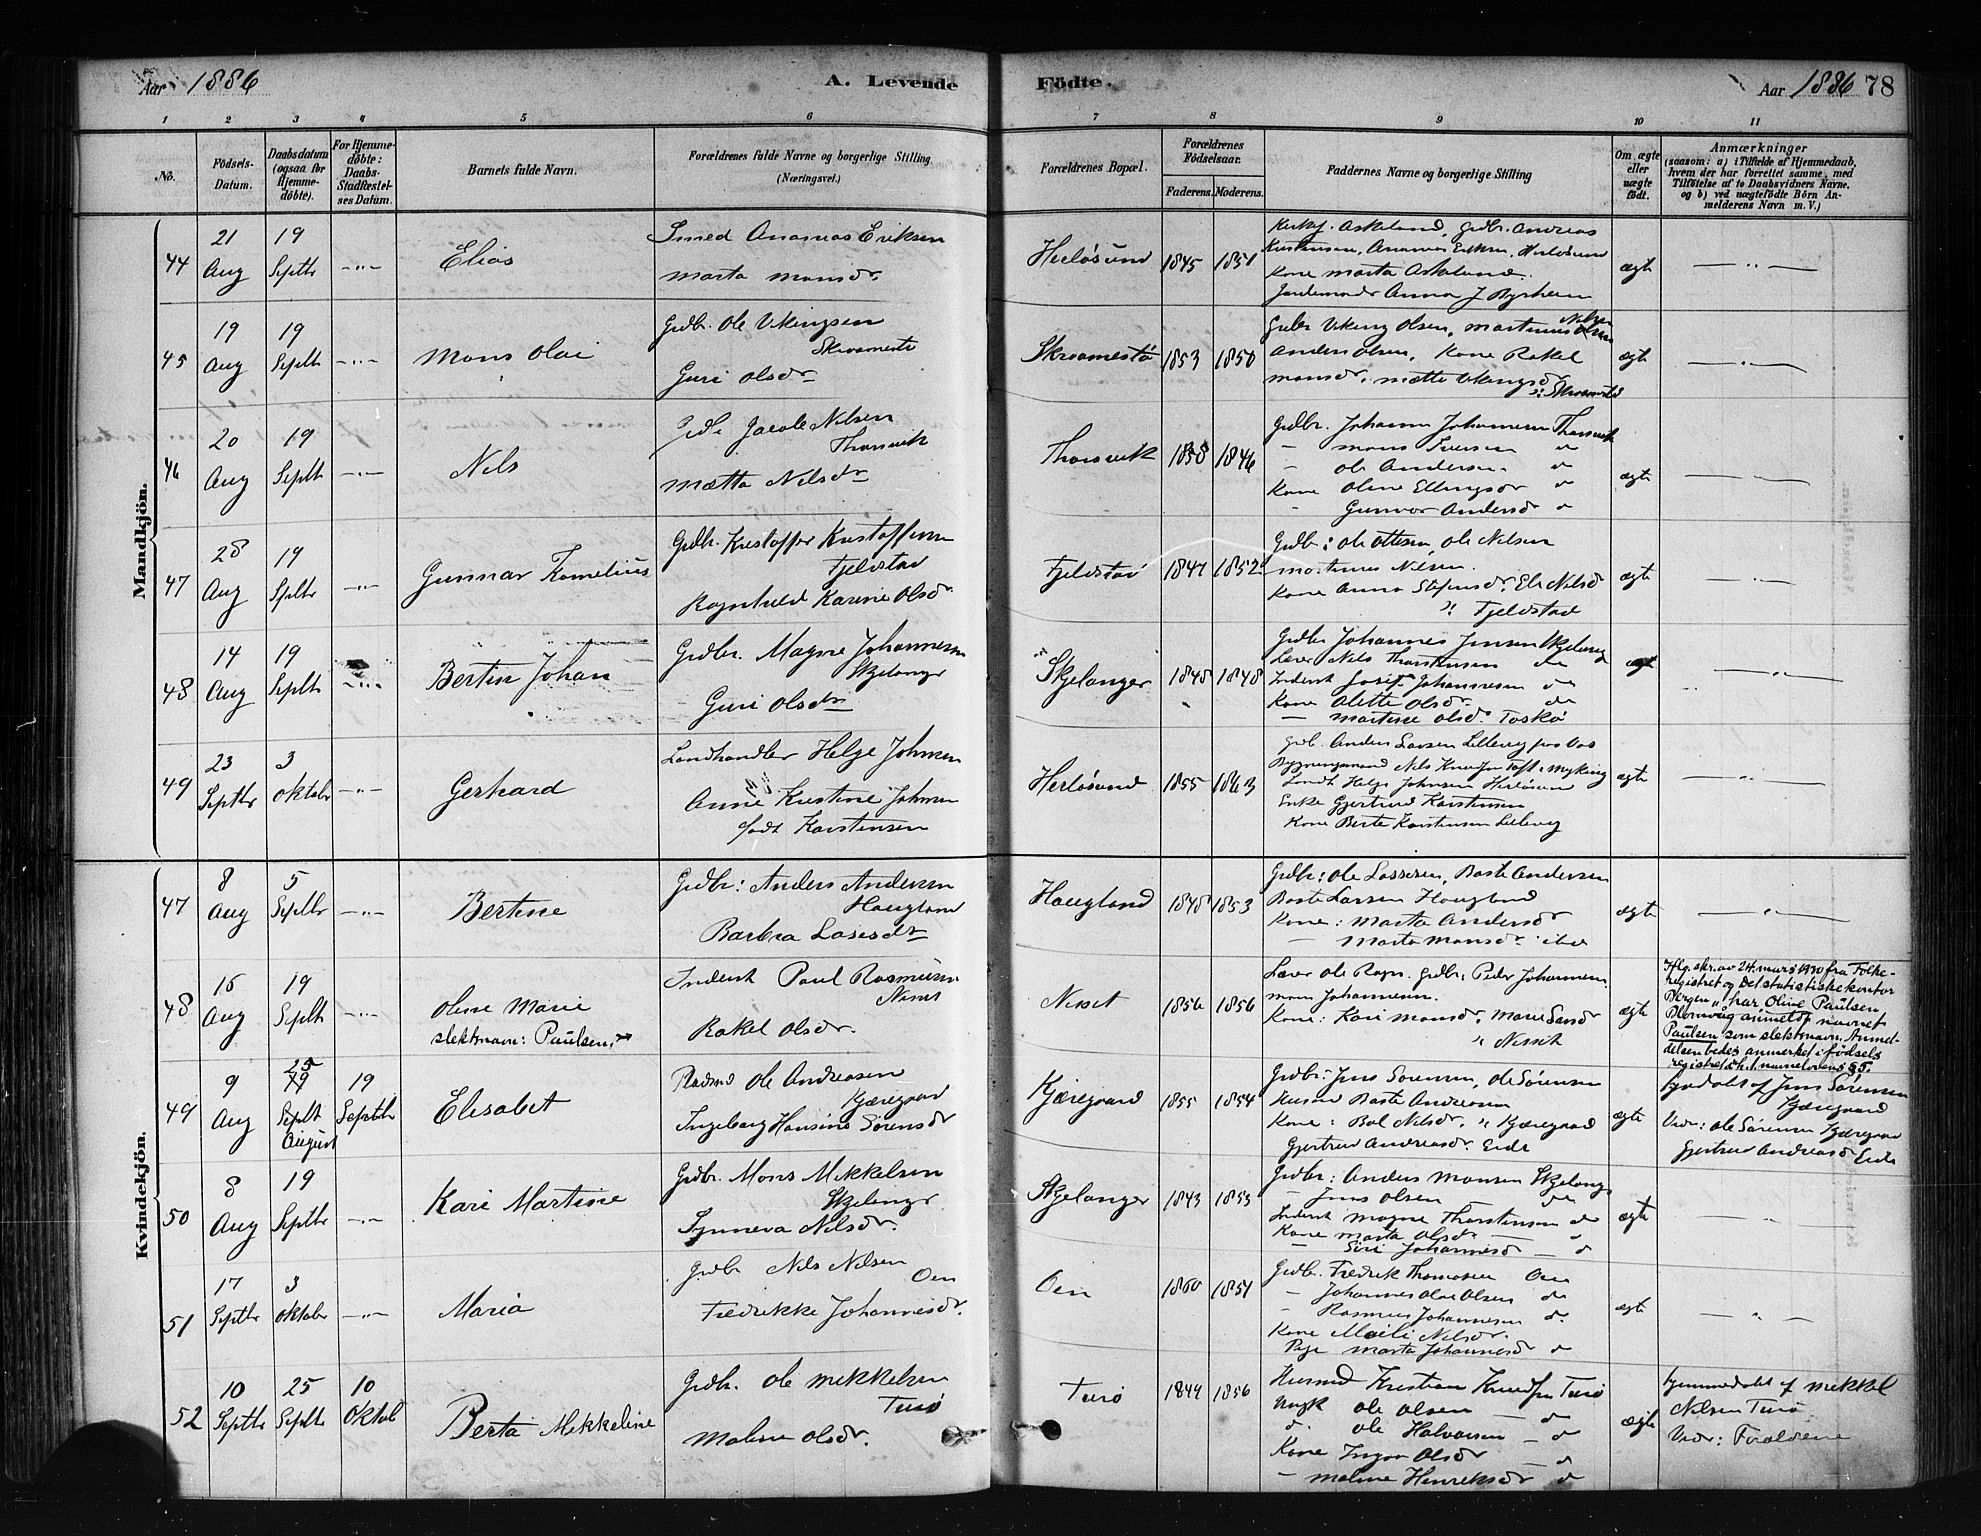 Aar 1886
A. Levende
Födte.
Aar 1886 78
1 2 3 4 5 6 7 8 9 10 11
No.
Födsels-
Datum.
Daabsdatum
(ogsaa for
Hjemme-
döbte).
For Hjemme-
döbte:
Daabs-
Stadfæstel-
ses Datum.
Barnets fulde Navn.
Forældrenes fulde Navne og borgerlige Stilling.
(Næringsvei.)
Forældrenes Bopæl.
Forældrenes
Födselsaar.
Faderens. Moderens.
Faddernes Navne og borgerlige Stilling
Om ægte
eller
uægte
födt.
Anmærkninger
(saasom: a) i Tilfælde af Hjemmedaab,
hvem der har forrettet samme, med
Tilföielse af to Daabsvidners Navne,
og b) ved uægtefödte Börn An-
melderens Navn m. V.)
Mandkjön.
44
21
Aug
19
Septbr
Elias
Smed Ananias Eriksen
Marta Monsdr.
Herløsund
1845 1851
Kirkesg. Askeland, Grdbr. Andreas
Kone Marta Askeland.
Jordemoder Anna J Byrheim
ægte
45
19
Aug
19
Septbr
Mons Olai
Grdbr. Ole Vikingsen
Guri Olsdr
1853 1850
Grdbr Viking Olsen, Martinus Nilsen
Anders Olsen, Kone Rakel
Monsdr, Mætte Vikingsdr
ægte
46
20
Aug
19
Septbr
Nils
Jacob Nilsen
Thorsvik
Mætta Nilsdr
Thorsvik
1858 1846
Grdbr. Johannes Johannesen Thorsvik
- Mons Iversen do
- Ole Andersen do
Kone Oline Ellingsdr do
- Gunvor Andersdr do
ægte
47
28
Aug
19
Septbr
Gunnar Kornelius
Grdbr. Kristoffer Kristoffersen
Fjeldstad
Ragnhild Karine Olsdr
Fjeldstad
1847 1852
Grdbr: Ole Ottesen, Ole Nilsen
Martinus Nilsen.
Kone Anna Stefensdr, Eli Nilsdr
Fjeldstad
ægte
48
14
Aug
19
Septbr
Bertin Johan
Grdbr. Magne Johannesen
Skjelanger
Guri Olsdr
Skjelanger
1848 1848
Grdbr Johannes Jensen Skjelanger
Lærer Nils Thorstensen do
Inderst Josef Johannesen do
Kone Olette Olsdr do
- Martine Olsdr. Toskø
ægte
49
23
Septbr
3
Oktober
Gerhard
Landhandler Helge Johnsen
Anne Kristine Johnsen
født Karstensen
Herløsund
1855 1863
Grdb. Anders Larsen Lillevig paa Vos
Landh. Helge Johnsen Herløsund
Enke Gjertrud Karstensen
Kone Berte Karstensen Lillevig
ægte
Kvindekjön.
47
8
Aug
5
Septbr
Bertine
Grdbr: Anders Andersen
Haugland
Barbra Lassesdr
Haugland
1848 1853
Grdbr: Ole Lassesen, Baste Andersen
Baste Larsen Haugland
Kone: Marta Andersdr
- Marta Monsdr. ibd
ægte
48
16
Aug
19
Septbr
Oline Marie
slektsnavn: Paulsen.
Inderst Paul Rasmusen
Nesset
Rakel Olsdr.
Nesset
1856 1856
Lærer Ole Rogn. Grdbr: Peder Johannesen
Mons Johannesen.
Kone: Kari Monsdr, Marie
Nesset
ægte
Iflg. skr. av 24. mars 1930 fra Folke-
registret og Det statistiske kontor
Bergen, har Olive Paulsen
anmeldt navnet
Paulsen som slektsnavn. Anmel-
delsen bedes anmerket i fødsels
registret i h. t. navnelovens § 5.
49
9
Aug
25
19
Septbr
August
19
Septbr
Elisabet
Ole Andreasen
Kjæregaard
Ingeborg Hansine Sørensdr
Kjæregaard
1855 1854
Grdbr: Jens Sørensen, Ole Sørensen
Husmd Baste Andreasen
Kone: Bol Nilsdr. Kjæregaard
Gjertrud Andreasdr. Eide
ægte
hjdøbt af Jens Sørensen
Kjæregaard
Vidn: Ole Sørensen Kjæregaard
Gjertrud Andreasdr Eide
50
8
Aug
19
Septbr
Kari Martine
Grdbr. Mons Mikkelsen
Skjelanger
Synneva Nilsdr.
Skjelanger
1843 1853
Grdbr: Anders Monsen Skjelanger
- Jens Olsen do
Inderst Magne Thorstensen do
Kone Marta Olsdr do
- Siri Johannesdr do
ægte
51
17
Septbr
3
Oktober
Maria
Grdbr Nils Nilsen
Oen
Fredrikke Johannesdr.
Oen
1860 1851
Grdbr. Fredrik Thomassen Oen
- Johannes Olai Olsen do
- Rasmus Johannesen do
Kone Maili Nilsdr.
Pige Marta Johannesdr do
ægte
52
10
Septbr
25
Septbr
10
Oktob
Berta Mekkeline
Grdbr. Ole Mikkelsen
Turø
Malene Olsdr.
Turø
1844 1856
Husmd Kristian Knudsen Turø
Ungk Ole Olsen do
do. Ole Halvorsen do
Kone Inger Olsdr do
- Maline Henriksdr do
ægte
hjemmedøbt af Mikkel
Nilsen Turø
Vidn: Forældrene